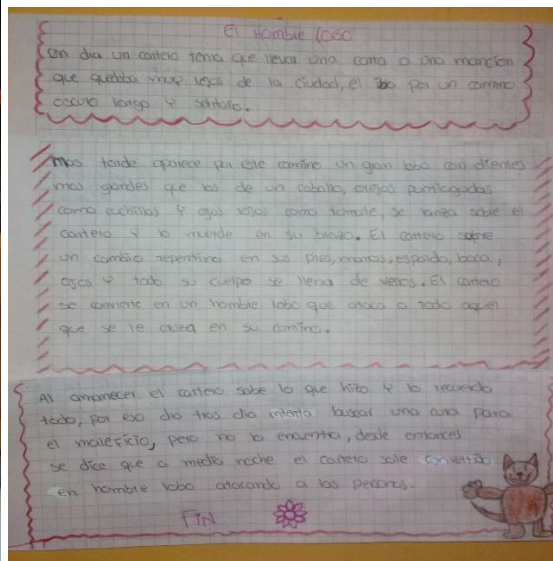 El Hombre lobo
Un dia un cartero tenia que llevar una carta a una mancion
que quedaba muy lejos de la ciudad, el iba por un camino
oscuro largo y solitario.
mas tarde aparece por este camino un gran lobo con dientes
mas grandes que los de un caballo, orejas puntiagudas
como cuchillas y ojos rojos como tomate, se lanza sobre el
cartero y lo muerde en su brazo. El cartero sufre
un cambio repentino en sus pies, manos, espalda, boca,
ojos y todo su cuerpo se llena de vellos. El cartero
se convierte en un hombre lobo que ataca a todo aquel
que se le cruza en su camino.
Al amanecer el cartero sabe lo que hizo y lo recuerda
todo, por eso dia tras dia intenta buscar una cura para
el maleficio, pero no lo encuentra, desde entonces
se dice que a media noche el cartero sale convertido
en hombre lobo atacando a las personas.
FIN